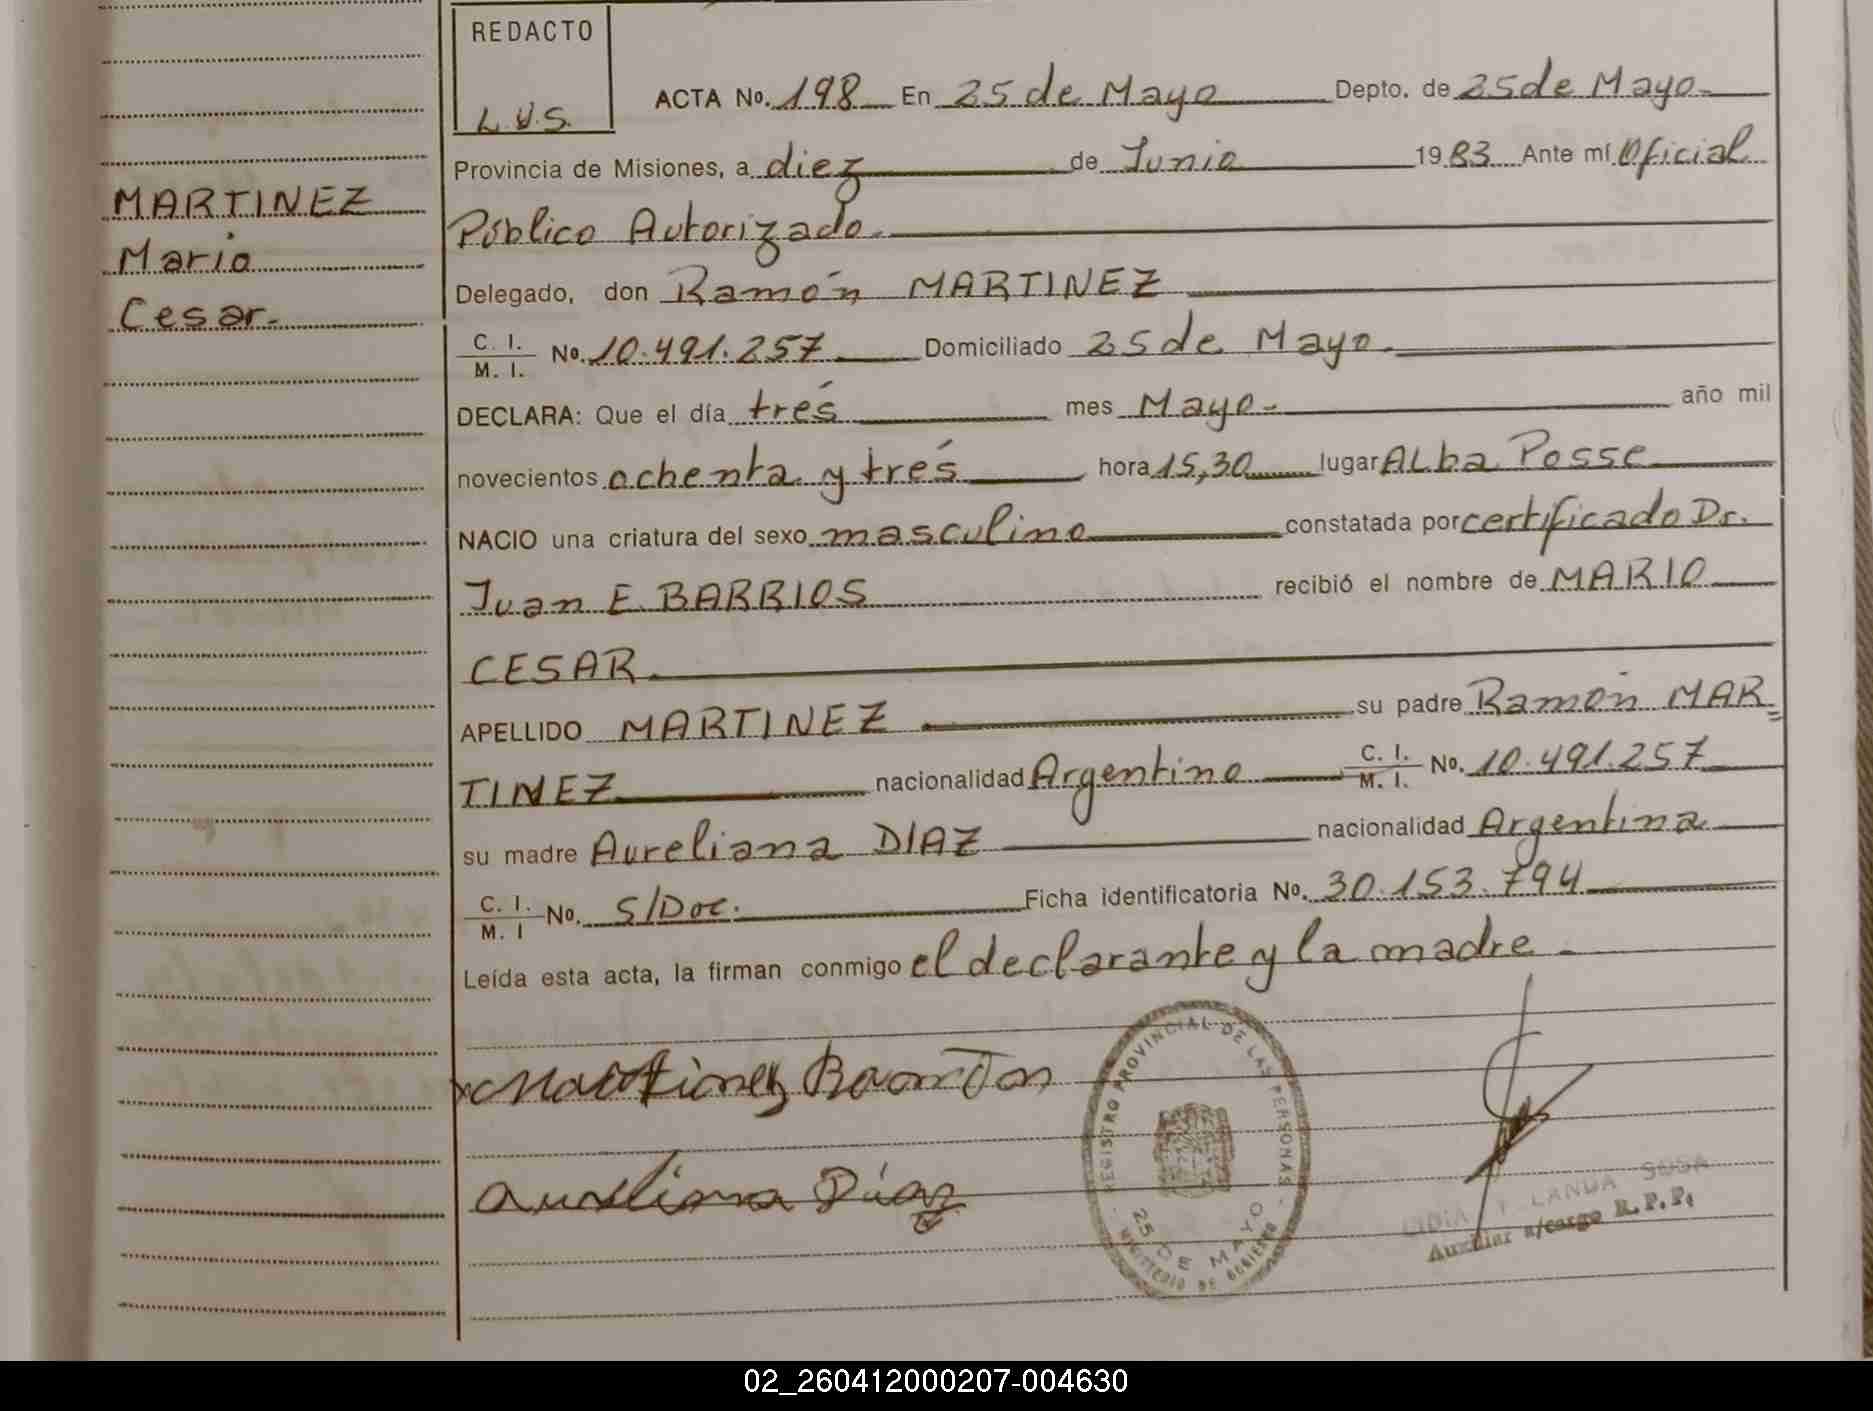 REDACTO
L.V.S.
ACTA No. 198 En 25 de Mayo Depto. de 25 de Mayo.
Provincia de Misiones, a diez de Junio 1983 Ante mí Oficial
Público Autorizado.
MARTINEZ
Mario
Cesar.
Delegado, don Ramón MARTINEZ
C. I.
M. I. No. 10.491.257 Domiciliado 25 de Mayo.
DECLARA: Que el día trés mes Mayo. año mil
novecientos ochenta y trés hora 15,30 lugar ALba Posse
NACIO una criatura del sexo masculino constatada por certificado Dr.
Juan E. BARRIOS recibió el nombre de MARIO
CESAR.
APELLIDO MARTINEZ su padre Ramón MAR
TINEZ nacionalidad Argentino C. I. M. I. No. 10.491.257
su madre Aureliana DIAZ nacionalidad Argentina
C. I. M. I No. S/Doc. Ficha identificatoria No. 30.153.794
Leída esta acta, la firman conmigo el declarante y la madre.
Martinez Ramon
Aureliana Díaz
REGISTRO PROVINCIAL DE LAS PERSONAS
25 DE MAYO
MINISTERIO DE GOBIERNO
LIDIA LANDA SOSA
Auxiliar a/cargo R.P.P.
02_260412000207-004630